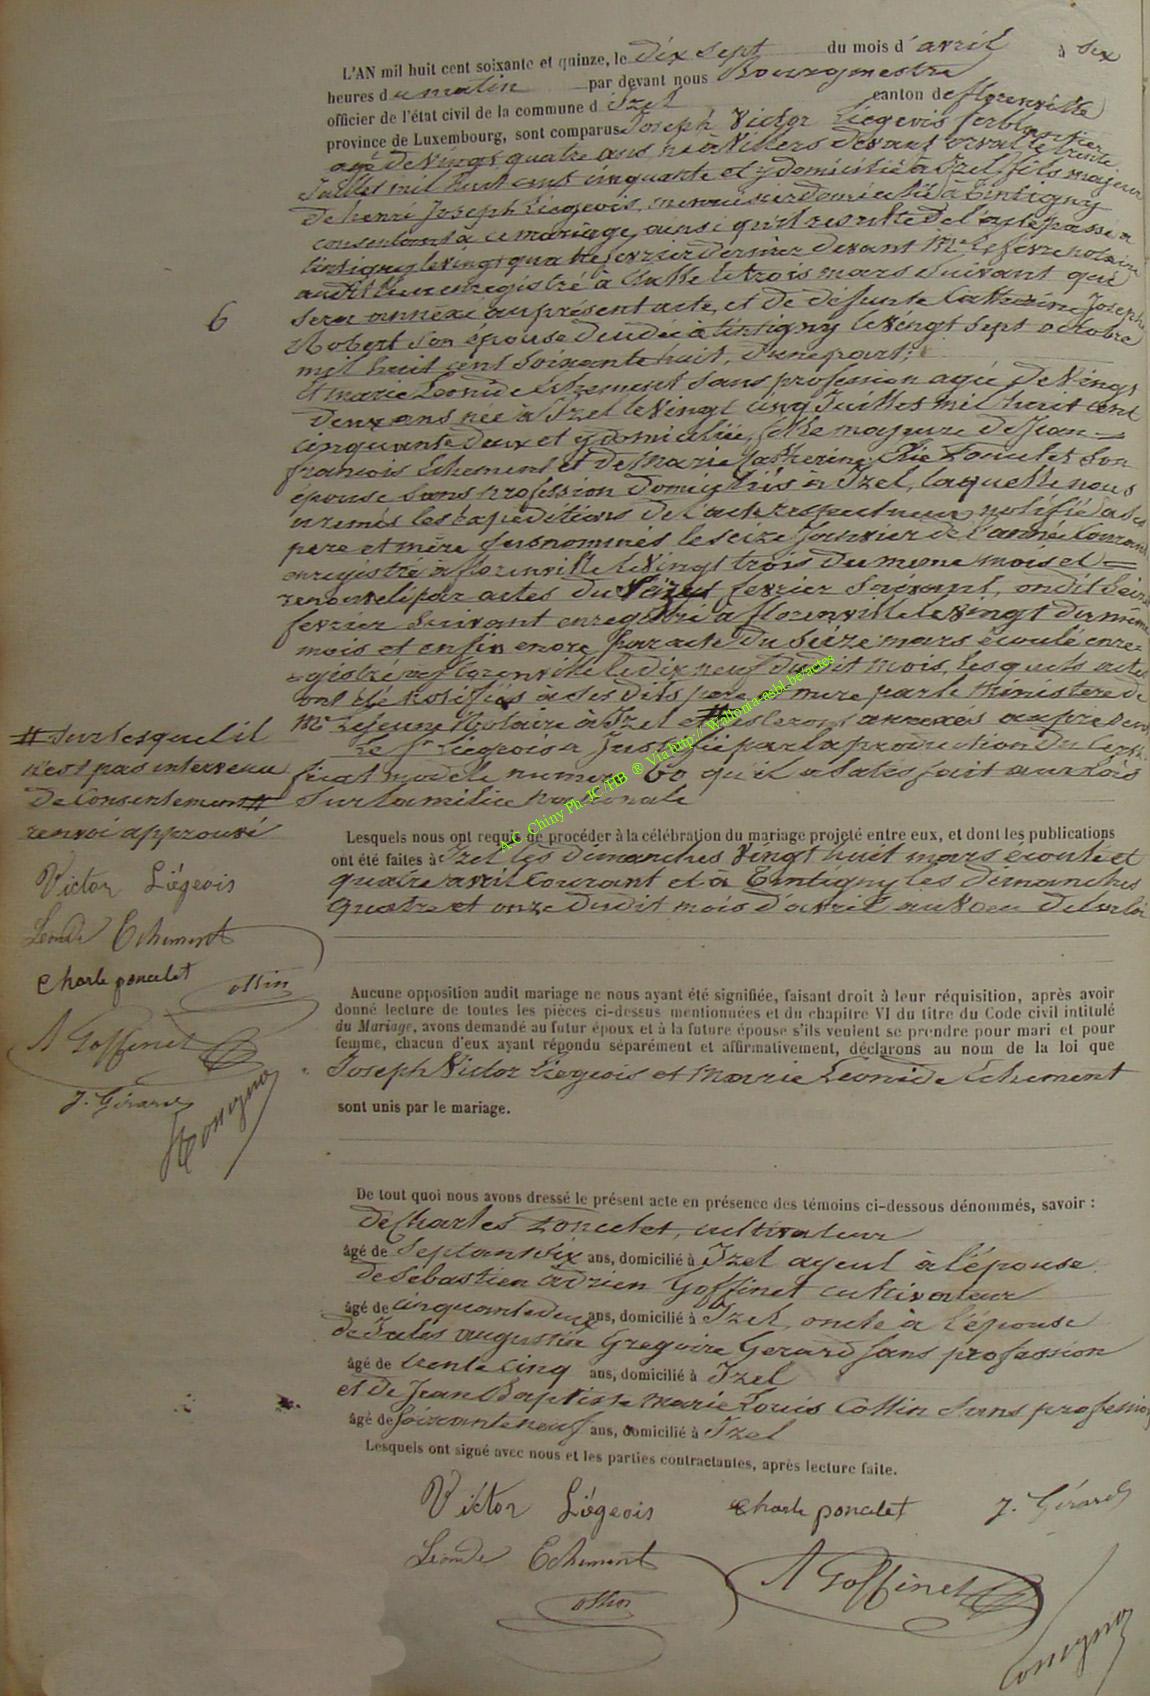 L'AN mil huit cent soixante et quinze, le dix sept du mois d'avril à six
heures du matin par devant nous Bourgmestre
officier de l'état civil de la commune d Izel canton de florenville
province de Luxembourg, sont comparus Joseph Victor Liégeois ferblantier
agé de vingt quatre ans né à Villers devant orval le trente
Juillet mil huit cent cinquante et y domicilié à Izel, fils majeur
de henri Joseph Liégeois, menuisier domicilié à Tintigny
consentant à ce mariage, ainsi qu'il résulte de l'acte passé a
tintigny le vingt quatre fevrier dernier devant Me Lefèvre notaire
audit lieu enregistré à Etalle le trois mars suivant qui
sera annexé au présent acte, et de défunte Catherine Joseph
Robert son épouse décédée à tintigny le vingt sept octobre
mil huit cent soixante huit, d'une part;
6
Et marie Léonide Echement sans profession agée de vingt
deux ans née à Izel le vingt cinq Juillet mil huit cent
cinquante deux et y domiciliée, fille majeure de Jean =
françois Echement et de Marie Catherine Elie Poncelet son
épouse sans profession domiciliés à Izel, laquelle nous
a remis les expéditions de l'acte respectueux notifié à ses
pere et mère susnommés le seize Janvier de l'année Courante
enregistré à florenville le vingt trois du meme mois et =
renouvelé par actes du seize fevrier suivant, on dit seize
fevrier suivant enregistré à florenville le vingt du même
mois et enfin encore par acte du seize mars écoulé enre-
-gistré à florenville le dix neuf dudit mois, lesquels actes
ont été notifiés à ses dits pere et mere par le Ministère de
Me Lejeune Notaire à Izel et # resteront annexés au présent
Le Sr Liégeois a Justifié par la production du certi-
ficat modèle numero 60 qu'il a satisfait aux lois
sur la milice nationale
# sur lesquel il
n'est pas intervenu
de Consentement #
renvoi approuvé
Victor Liégeois
Léonide Echement
Charle poncelet
ollin
A Goffinet
J. Gérard
Lesquels nous ont requis de procéder à la célébration du mariage projeté entre eux, et dont les publications
ont été faites à Izel les dimanches vingt huit mars écoulé et
quatre avril courant et à Tintigny les dimanches
quatre et onze dudit mois d'avril au voeu de la loi
Aucune opposition audit mariage ne nous ayant été signifiée, faisant droit à leur réquisition, après avoir
donné lecture de toutes les pièces ci-dessus mentionnées et du chapitre VI du titre du Code civil intitulé
du Mariage, avons demandé au futur époux et à la future épouse s'ils veulent se prendre pour mari et pour
femme, chacun d'eux ayant répondu séparément et affirmativement, déclarons au nom de la loi que
Joseph Victor Liégeois et Marie Léonide Echement
sont unis par le mariage.
De tout quoi nous avons dressé le présent acte en présence des témoins ci-dessous dénommés, savoir :
de Charles Poncelet, cultivateur
âgé de Septante six ans, domicilié à Izel ayeul à l'épouse
de Sébastien adrien Goffinet cultivateur
âgé de cinquante deux ans, domicilié à Izel, oncle à l'épouse
de Jules augustin Gregoire Gerard sans profession
âgé de trente cinq ans, domicilié à Izel
et de Jean Baptiste marie Louis Collin sans profession
âgé de soixante neuf ans, domicilié à Izel
Lesquels ont signé avec nous et les parties contractantes, après lecture faite.
Victor Liégeois Charle poncelet J. Gérard
Léonide Echement A Goffinet
ollin
A.C. Chiny Ph. JC/HB ® Via http://Wallonia-asbl.be/actes